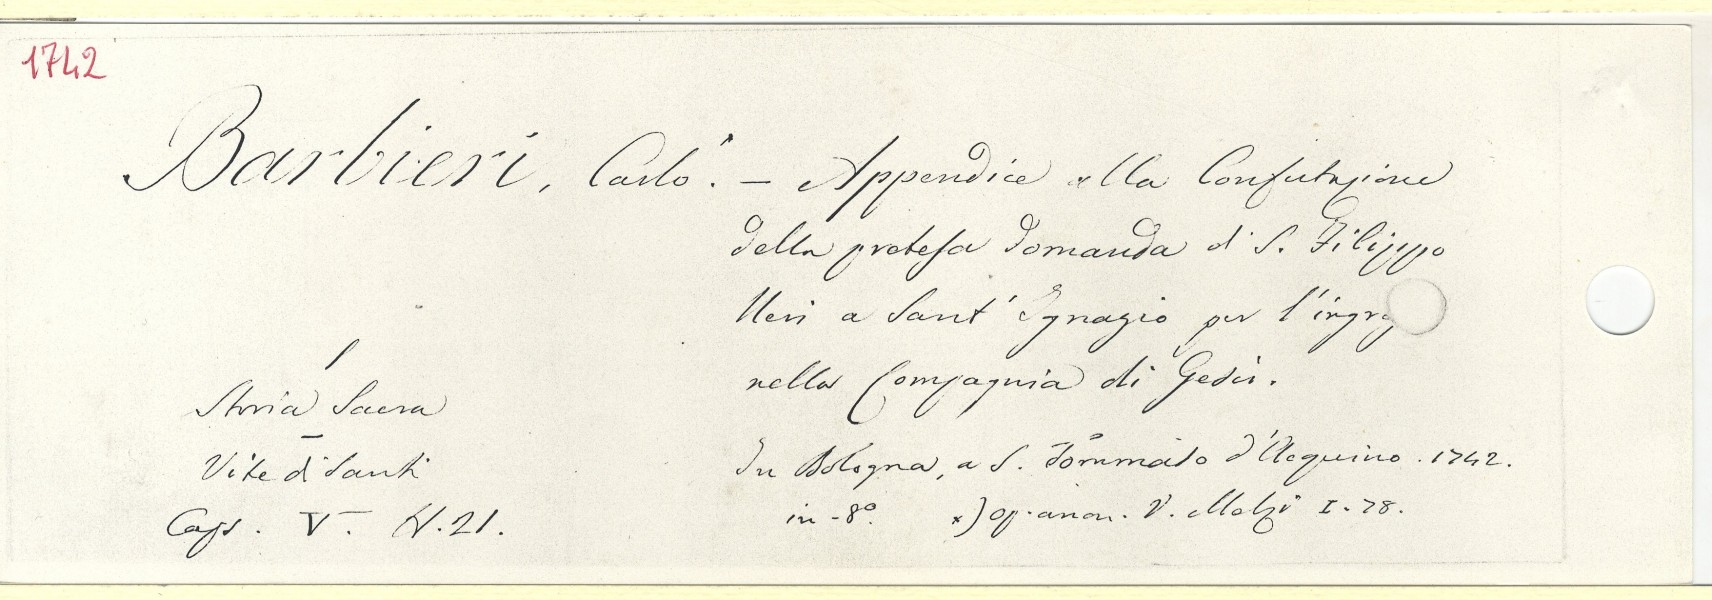 1742
Barbieri, Carlo*. — Appendice alla Confutazione
della pretesa domanda di S. Filippo
Neri a Sant' Ignazio per l'ingr
nella Compagnia di Gesù.
Storia Sacra
Vite di Santi
In Bologna, a S. Tommaso d'Acquino. 1742.
Caps. V. N. 21.
in-8º. *) op. anon. V. Melzi I. 78.